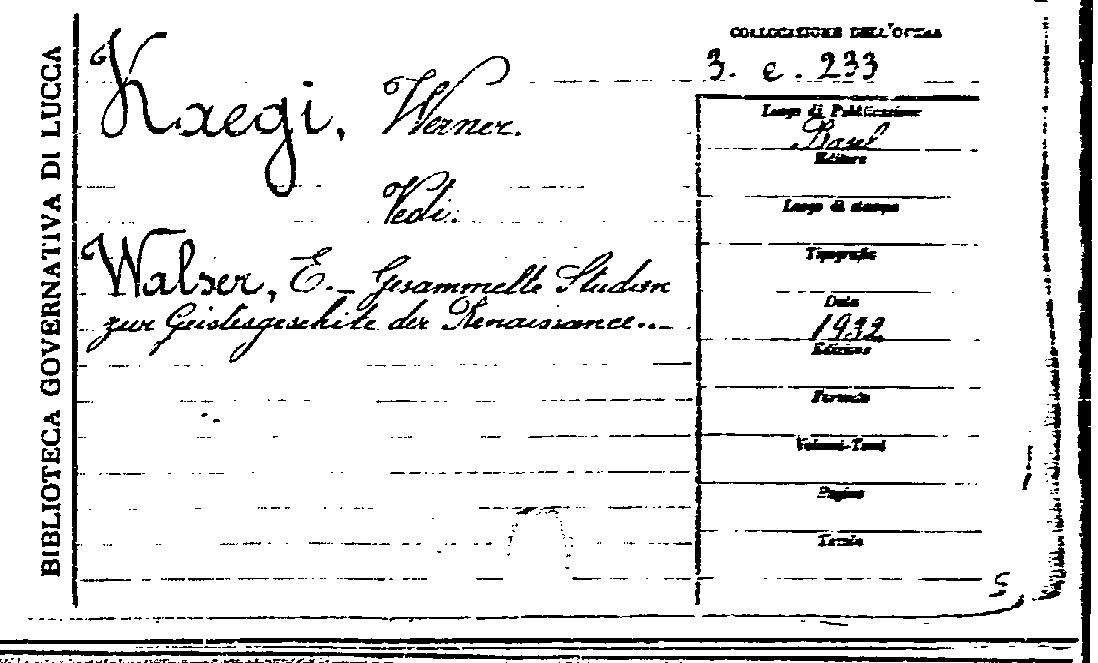 BIBLIOTECA GOVERNATIVA DI LUCCA
COLLOCAZIONE DELL'OPERA
3. e. 233
Kaegi, Werner.
Vedi:
Walser, E. — Gesammelte Studien
zur Geistesgeschite der Renaissance...
Luogo di Pubblicazione
Basel
Editore
Luogo di stampa
Tipografia
Data
1932
Edizione
Formato
Volumi-Tomi
Pagine
Tavole